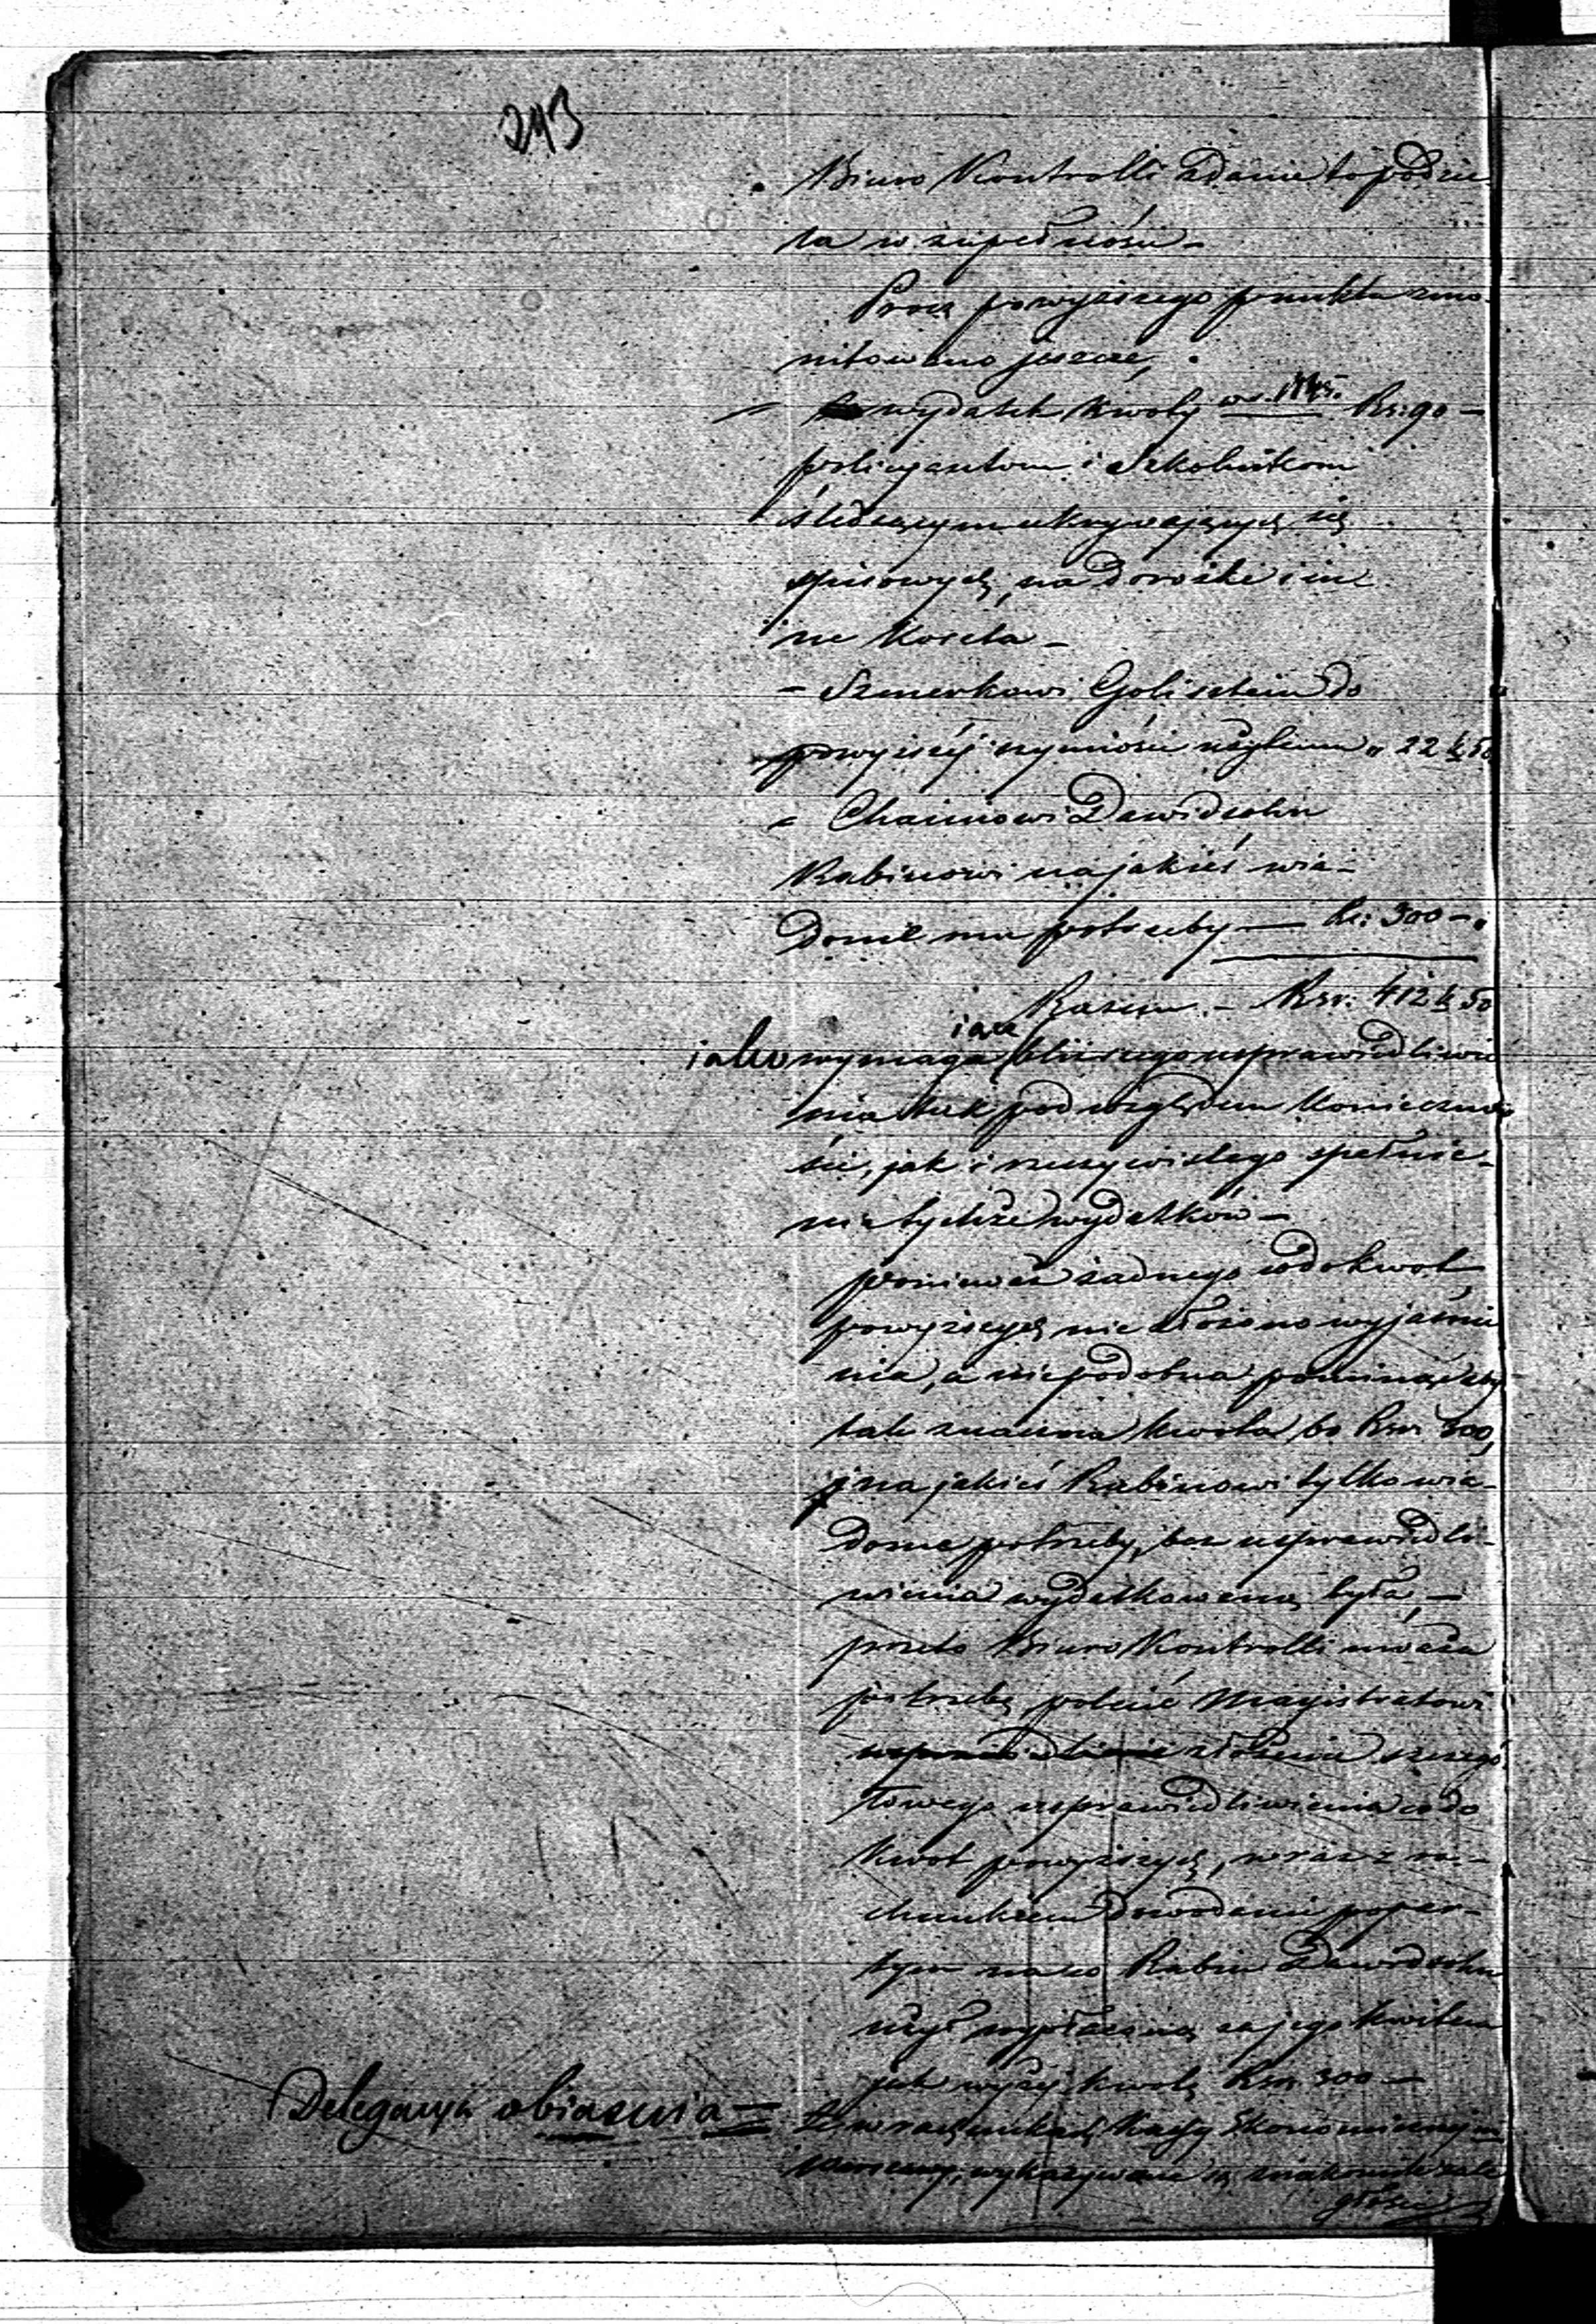 243
Biuro Kontrolli zdanie to podzie
la w zupełności –
Prócz powyższego punktu zmo-
nitowano jeszcze,
– wydatek kwoty w r. 1845. Rs: 90 –
policyantom i Szkolnikom
śledzącym ukrywających się
spisowych, na dorożki i in
ne koszta –
– Szmerkowi Golisztein do
powyższej czynności użytemu „ 22 k 50
– Chaimowi Dawidsohn
Rabinowi na jakieś wia-
dome mu potrzeby – Rs: 300 –
Razem – Rsr: 412 k 50
iako wymagające bliższego usprawiedliwie
nia tak pod względem konieczno
ści, jak i rzeczywistego spełnie-
nia tychże wydatków –
ponieważ żadnego co do kwot
powyższych nie złożono wyjaśnie
nia, a niepodobna pominąć aby
tak znaczna kwota bo Rsr. 300,
na jakieś Rabinowi tylko wia-
dome potrzeby, bez usprawiedli-
wienia wydatkowaną była, –
przeto Biuro Kontrolli uważa
potrzebę polecić Magistratowi
złożenie szczegó
łowego usprawiedliwienia co do
kwot powyższych, wraz z ra-
chunkiem dowodami popar-
tym na co Rabin Dawidsohn
użył wypłaconą za jego kwitem
jak wyżej kwotę Rsr 300 –
Delegacya obiaśnia –
że w rachunkach Kassy Ekonomicznej m
Warszawy, wykazywane są znakomite zale
głości